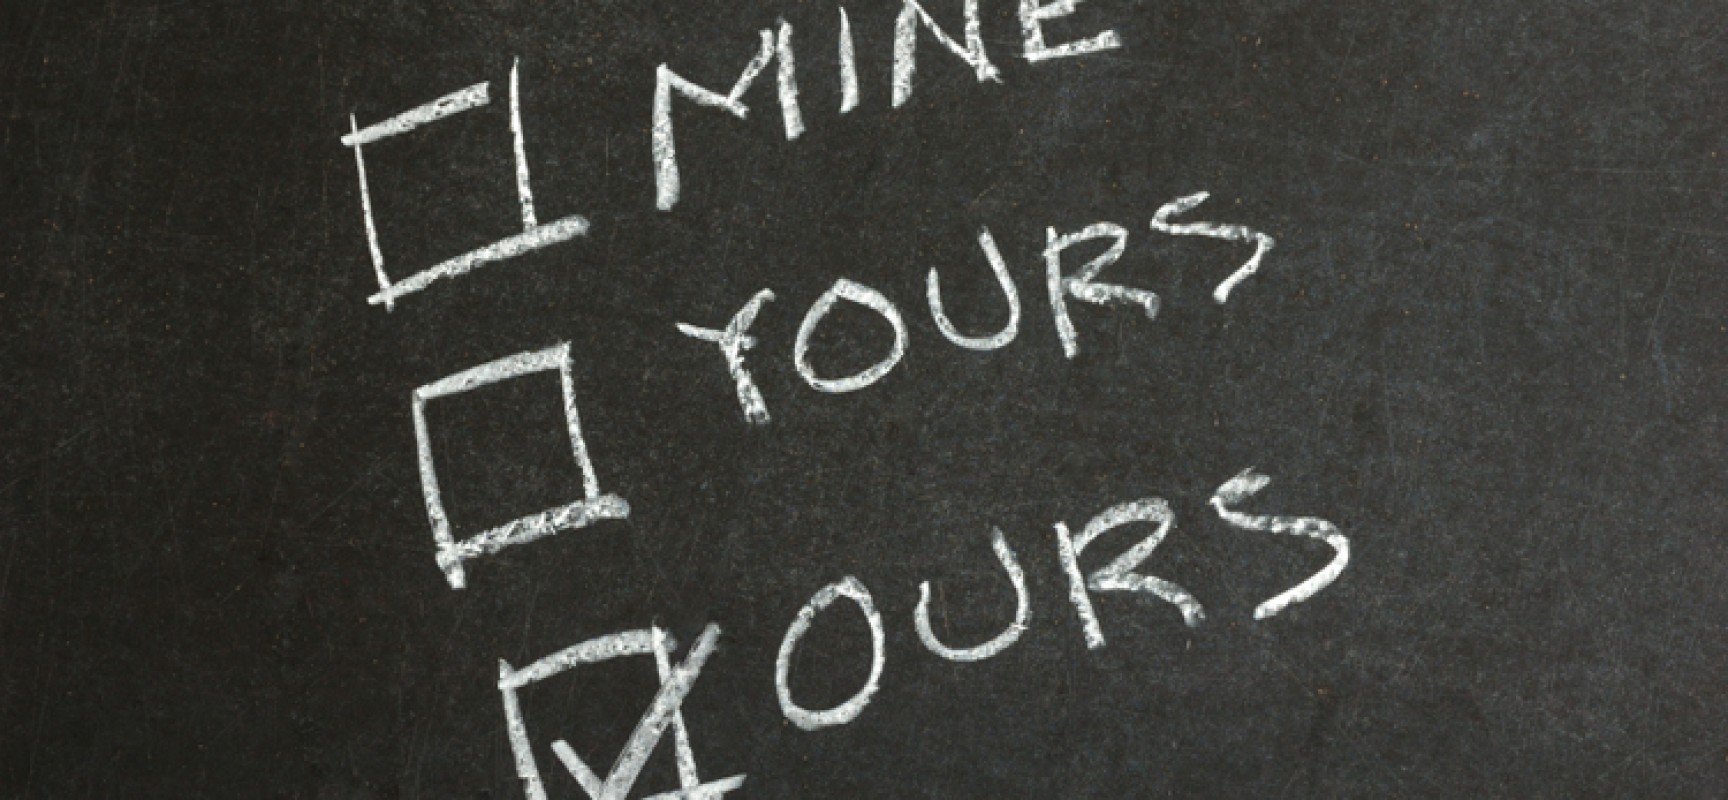 MINE
YOURS
OURS